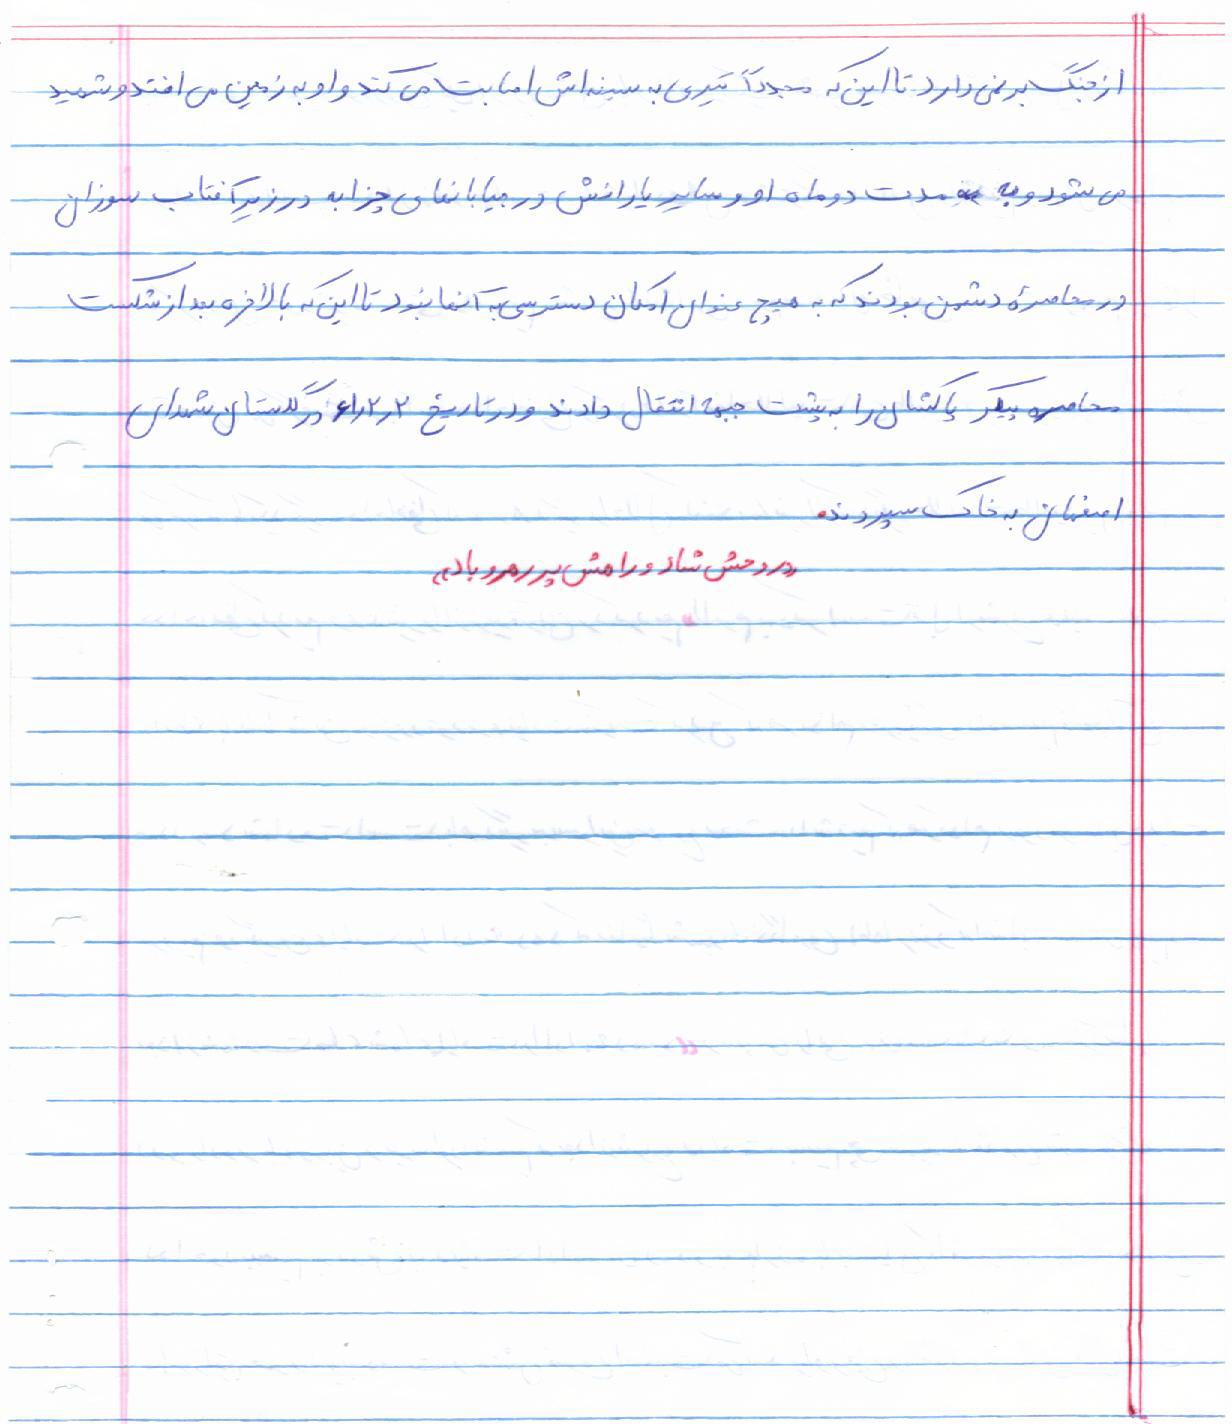 از جنگ بر نمی دارد تا این که مجدداً تیری به سینه اش اصابت می کند و او به زمین می افتد و شهید
می شود و به مدت دو ماه او و سایر یارانش در بیابانهای چزابه در زیر آفتاب سوزان
در محاصرهٔ دشمن بودند که به هیچ عنوان امکان دسترسی به آنها نبود تا این که بالاخره بعد از شکست
محاصره پیکر پاکشان را به پشت جبهه انتقال دادند و در تاریخ ۶۱٫۲٫۲ در گلستان شهدای
اصفهان به خاک سپردند.
«روحش شاد و راهش پر رهرو باد»